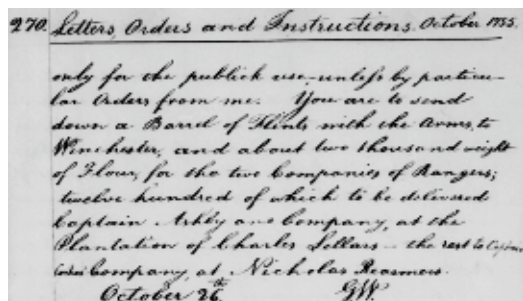 270. Letters, Orders and Instructions. October 1755.
only for the publick use, unless by particu-
lar Orders from me. You are to send
down a Barrel of Flints with the Arms, to
Winchester, and about two thousand weight
of Flour, for the two Companies of Rangers;
twelve hundred of which to be delivered
Captain Ashby and Company, at the
Plantation of Charles Sellars - the rest to Captain
Company, at Nicholas Reasmers.
October 26th. GW